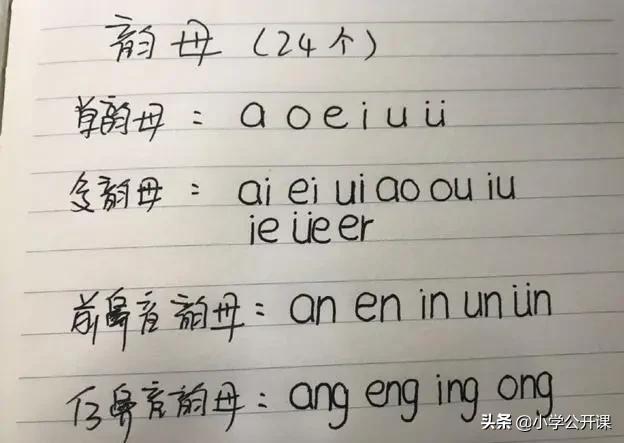 韵母（24个）
单韵母： a o e i u ü
复韵母： ai ei ui ao ou iu
ie üe er
前鼻音韵母： an en in un ün
后鼻音韵母： ang eng ing ong
头条 @小学公开课